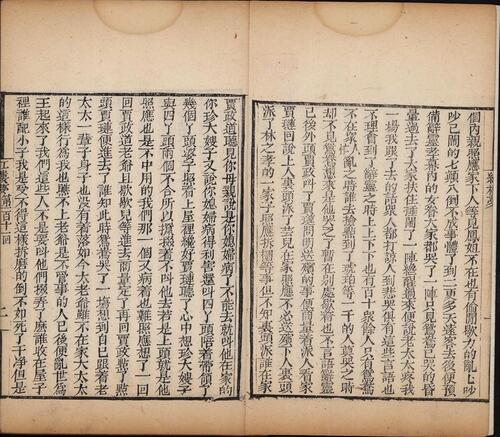 紅樓夢
個內親趕農家下人等見鳳姐不在也有偷閒歇力的亂亂吵
吵已鬧的七顛八倒不成事體了到二更多天遠客去後便預
備辭靈孝幕內的女眷大家都哭了一陣只見鴛鴦已哭的昏
暈過去了大家扶住捶鬧了一陣纔醒過來便說老太太疼我
一塲我跟了去的話衆人都打諒人到悲哭俱有這些言語也
不理會到了辭靈之時上上下下也有百十衆餘人只有鴛鴦
不在衆人忙亂之時誰去撿點到了琥珀等一干的人哭奠之時
却不見鴛鴦想來是他哭乏了暫在別處歇着也不言語辭靈
已後外頭賈政叫了賈璉問明送殯的事便商量着派人看家
賈璉回說上人裏頭派了芸兒在家照應不必送殯下人裏頭
派了林之孝的一家子照應拆棚等事但不知裏頭派誰在家
賈政道聽見你母親說是你媳婦病了不能去就叫他在家的
你珍大嫂子又說你媳婦病得利害還叫四丫頭陪着帶領了
幾個丫頭婆子照看上屋裡纔好賈璉聽了心中想珍大嫂子
與四丫頭兩個不合所以攛掇着不叫他去若是上頭就是他
照應也是不中用的我們那一個又病着也難照應想了一回
回賈政道老爺且歇歇兒等進去商量定了再回賈政點了點
頭賈璉便進去了誰知此時鴛鴦哭了一塲想到自己跟着老
太太一輩子身子也沒有着落如今大老爺雖不在家大太太
的這樣行爲我也瞧不上老爺是不管事的人已後便亂世爲
王起來了我們這些人不是要叫他們掇弄了麼誰收在屋子
裡誰配小子我是受不得這樣折磨的倒不如死了干凈但是
紅樓夢第百十一回
二